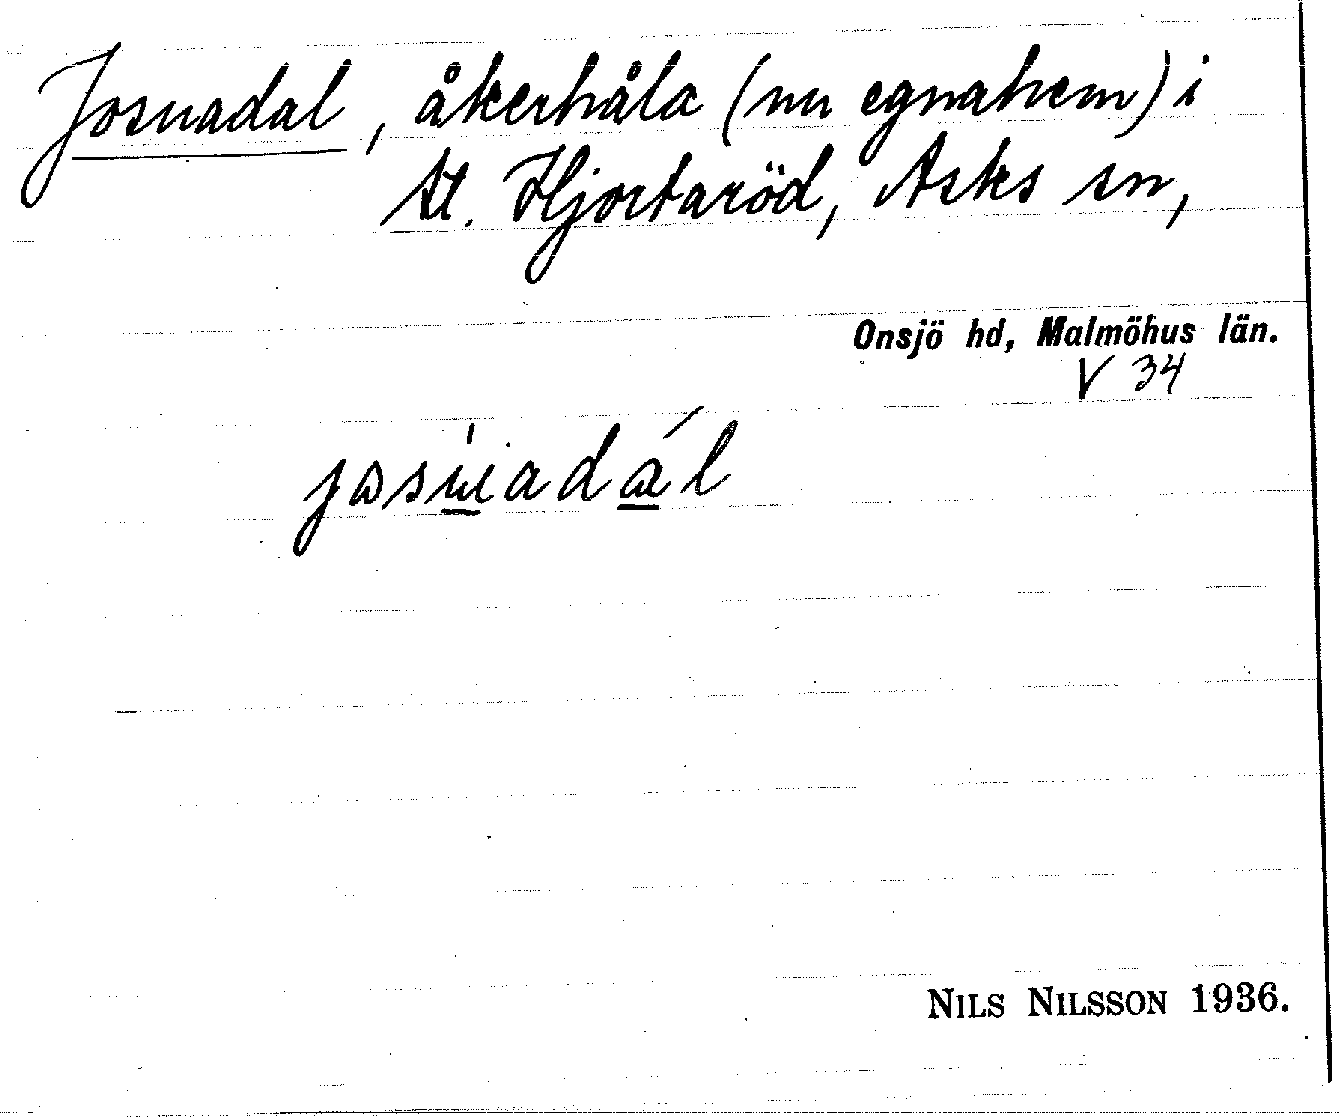 Josuadal, åkerhåla (nu egnahem) i
St. Hjortaröd, Asks sn,
Onsjö hd, Malmöhus län.
V 34
NILS NILSSON 1936.